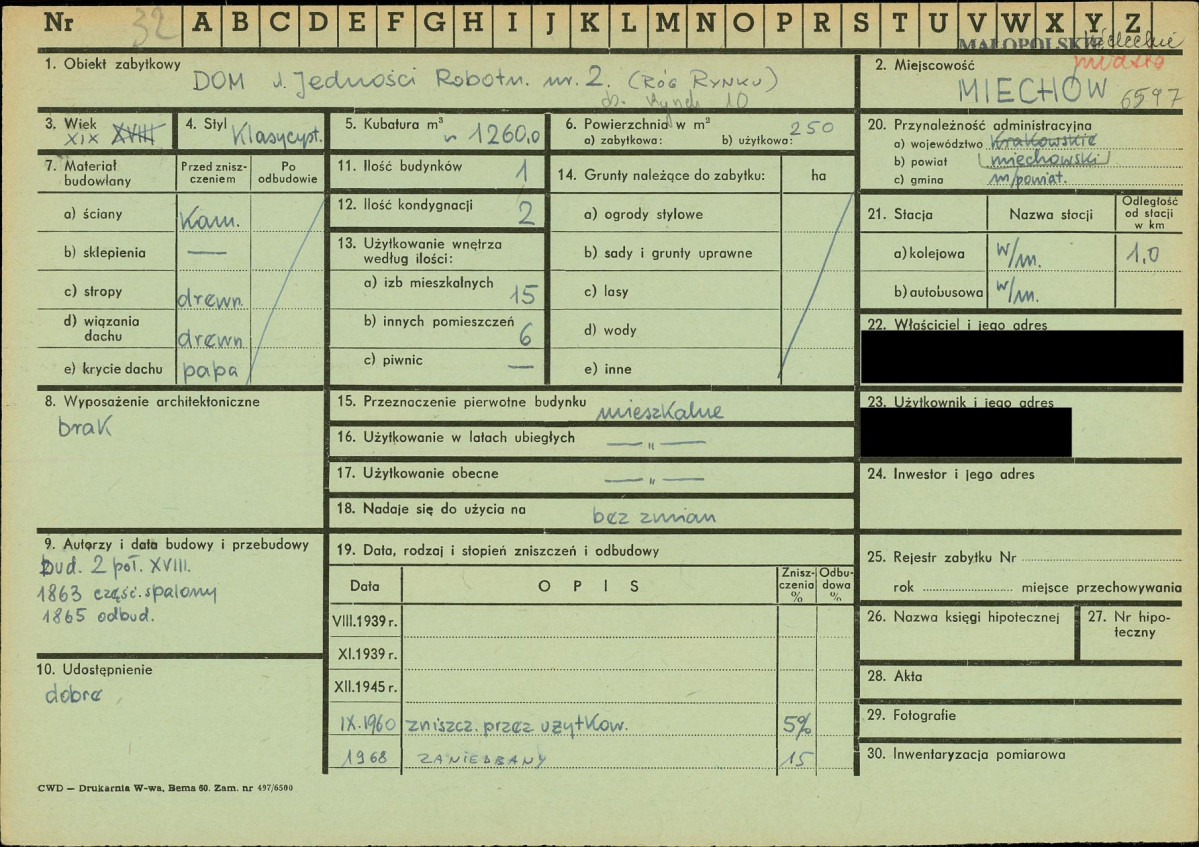 Nr 32 A B C D E F G H I J K L M N O P R S T U V W X Y Z
MAŁOPOLSKIE
miasto
1. Obiekt zabytkowy DOM ul. Jedności Robotn. nr. 2. (RÓG RYNKU)
ob. Rynek 10
2. Miejscowość
MIECHÓW 6597
3. Wiek
XIX XVIII
4. Styl Klasycyst.
5. Kubatura m³
~ 1260,0
6. Powierzchnia w m²
a) zabytkowa: b) użytkowa: 250
20. Przynależność administracyjna
a) województwo Krakowskie
b) powiat miechowski
c) gmina m/powiat.
7. Materiał budowlany
Przed zniszczeniem
Po odbudowie
a) ściany Kam.
b) sklepienia —
c) stropy drewn.
d) wiązania dachu drewn
e) krycie dachu papa
11. Ilość budynków 1
12. Ilość kondygnacji 2
13. Użytkowanie wnętrza
według ilości:
a) izb mieszkalnych 15
b) innych pomieszczeń 6
c) piwnic —
14. Grunty należące do zabytku: ha
a) ogrody stylowe
b) sady i grunty uprawne
c) lasy
d) wody
e) inne
21. Stacja Nazwa stacji Odległość od stacji w km
a) kolejowa w/m. 1,0
b) autobusowa w/m.
22. Właściciel i jego adres
23. Użytkownik i jego adres
24. Inwestor i jego adres
8. Wyposażenie architektoniczne
brak
15. Przeznaczenie pierwotne budynku mieszkalne
16. Użytkowanie w latach ubiegłych — „ —
17. Użytkowanie obecne — „ —
18. Nadaje się do użycia na bez zmian
9. Autorzy i data budowy i przebudowy
bud. 2 poł. XVIII.
1863 część. spalony
1865 odbud.
10. Udostępnienie
dobre
19. Data, rodzaj i stopień zniszczeń i odbudowy
Data OPIS Zniszczenia % Odbudowa %
VIII.1939 r.
XI.1939 r.
XII.1945 r.
IX.1960 zniszcz. przez użytkow. 5%
1968 ZANIEDBANY 15
25. Rejestr zabytku Nr
rok miejsce przechowywania
26. Nazwa księgi hipotecznej
27. Nr hipoteczny
28. Akta
29. Fotografie
30. Inwentaryzacja pomiarowa
CWD — Drukarnia W-wa, Bema 60. Zam. nr 497/6500